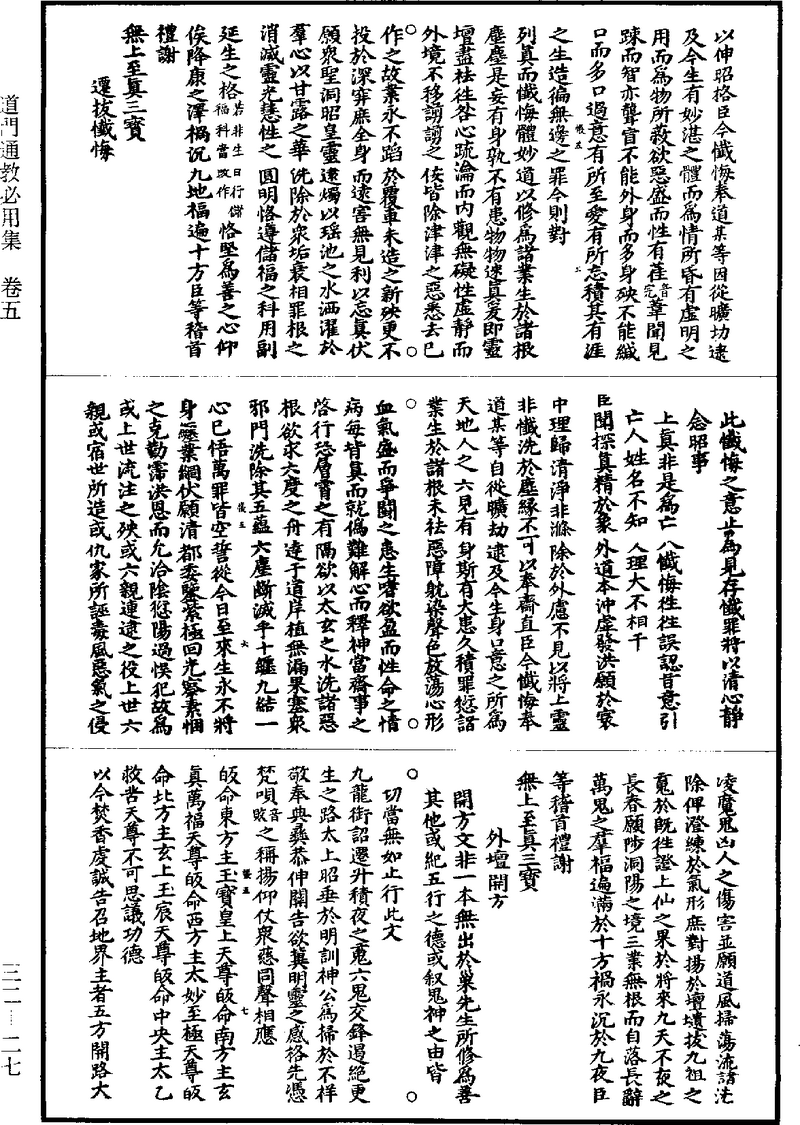 以伸昭格臣今懺悔奉道某等因從曠劫逮
及今生有妙湛之體而爲情所昏有虛明之
用而爲物所蔽欲惡盛而性有萑音完葦聞見
踈而智亦聾盲不能外身而多身殃不能緘
口而多口過意有所至愛有所忘積其有涯
之生造徧無邊之罪今則對
列眞而懺悔體妙道以修爲諸業生於諸根
塵塵是妄有身孰不有患物物迷眞爰即靈
壇盡祛徃咎心疏瀹而內觀無礙性虛靜而
外境不移諓諓之佞皆除津津之惡悉去已
作之故業永不蹈於覆車未造之新殃更不
投於深穽庶全身而遠害無見利以忘眞伏
願衆聖洞昭皇靈逮燭以瑶池之水洒濯於
羣心以甘露之華洗除於衆垢衰相罪根之
消滅靈光慧性之圓明恪遵儲福之科用副
延生之格若非生日行儲福科當改作恪堅爲善之心仰
俟降康之澤禍沉九地福遍十方臣等稽首
禮謝
無上至眞三寶
遷拔懺悔
此懺悔之意止爲見存懺罪將以清心靜
念昭事
上眞非是爲亡人懺悔徃徃誤認昔意引
亡人姓名不知人理大不相干
臣聞探眞精於象外道本沖虛發洪願於寰
中理歸清淨非滌除於外慮不見以將上靈
非懺洗於塵緣不可以奉齋直臣今懺悔奉
道某等自從曠劫逮及今生身口意之所爲
天地人之六見有身斯有大患久積罪愆諸
業生於諸根未祛惡障眈染聲色放蕩心形
血氣盛而爭鬪之患生嗜欲盈而性命之情
病每背眞而就僞難解心而釋神當齋事之
啓行恐層霄之有隔欲以太玄之水洗諸惡
根欲求六度之舟達于道岸植無漏果塞衆
邪門洗除其五蘊六塵斷滅乎十纏九結一
心已悟萬罪皆空誓從今日至來生永不將
身罹業網伏願清都委鑒紫極回光察素悃
之克勤霈洪恩而允洽陰愆陽過悞犯故爲
或上世流注之殃或六親連逮之役上世六
親或宿世所造或仇家所誣毒風惡氣之侵
凌魔鬼凶人之傷害並願道風掃蕩流諸洗
除俾澄練於氣形庶對揚於壇墠拔九祖之
䰟於旣徃證上仙之果於將來九天不夜之
長春願陟洞陽之境三業無根而自落長辭
萬鬼之羣福遍滿於十方禍永沉於九夜臣
等稽首禮謝
無上至眞三寶
外壇開方
開方文非一本無出於巢先生所修爲善
其他或紀五行之德或叙鬼神之由皆
切當無如止行此文
九龍銜詔遷升積夜之䰟六鬼交鋒遏絕更
生之路太上昭垂於明訓神公爲掃於不祥
敬奉典彝恭伸開告欲冀明靈之感格先憑
梵唄音敗之稱揚仰仗衆慈同聲相應
皈命東方主玉寶皇上天尊皈命南方主玄
眞萬福天尊皈命西方主太妙至極天尊皈
命北方主玄上玉宸天尊皈命中央主太乙
救苦天尊不可思議功德
以今焚香虔誠告召地界主者五方開路大
道門通教必用集　卷五
三二—二七